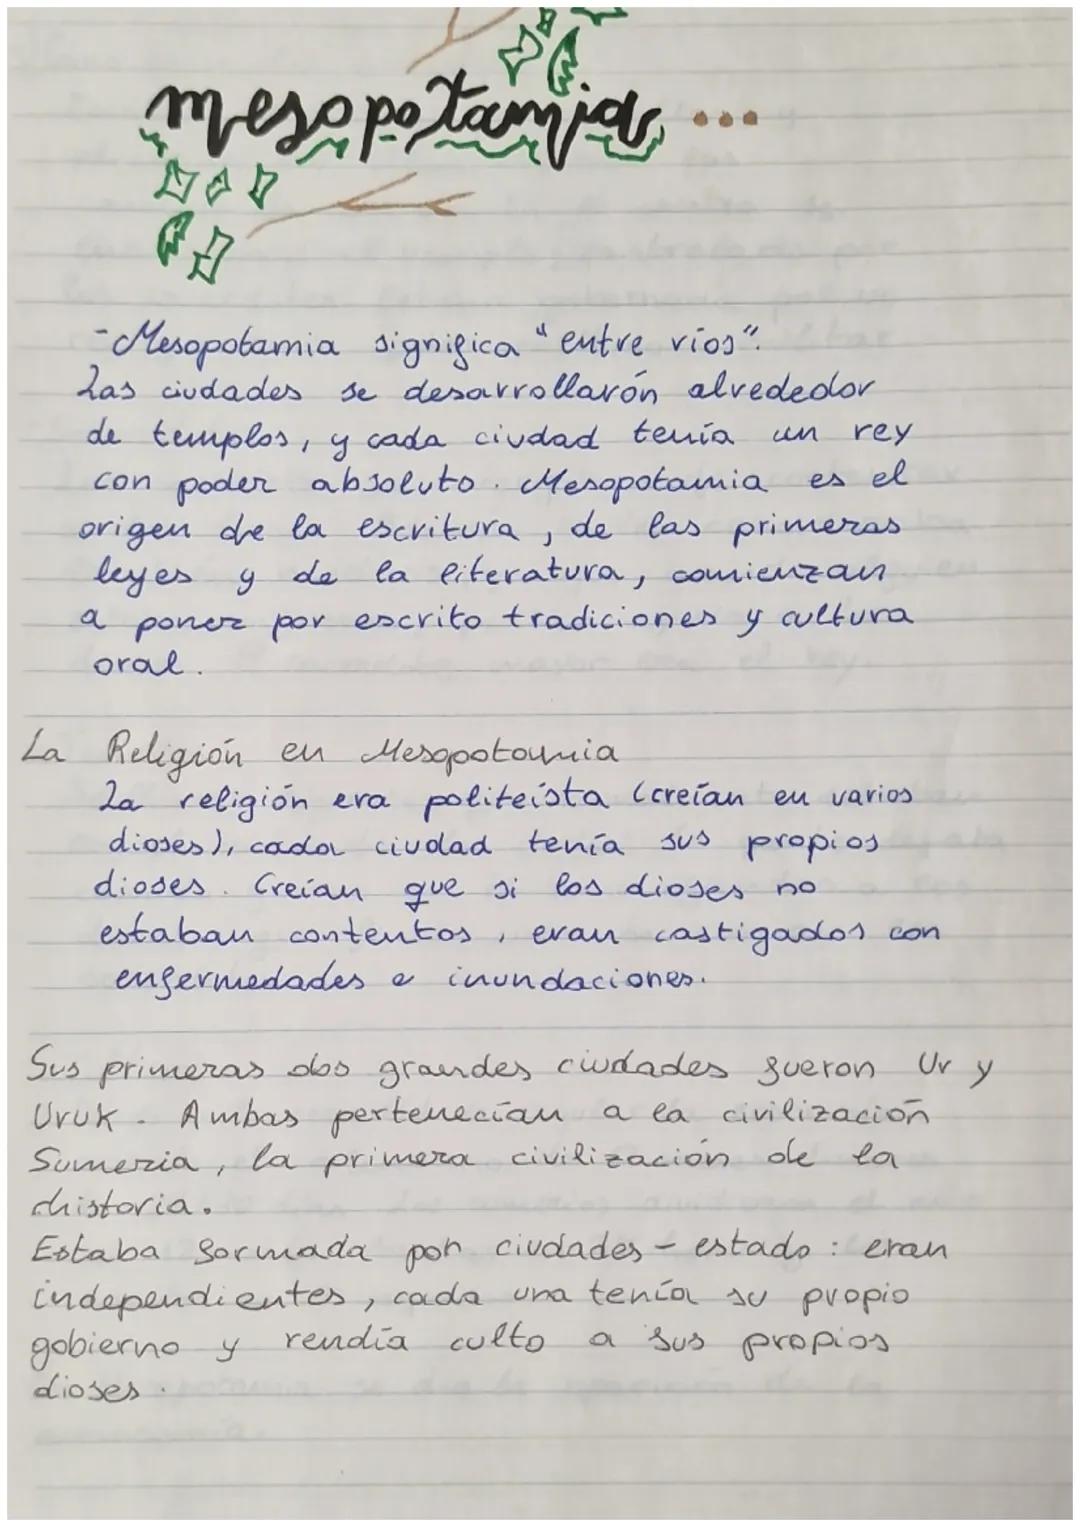 mesopotamia ...
- Mesopotamia significa "entre ríos".
Las ciudades se desarrollarón alrededor
de templos, y cada ciudad tenía un rey
con poder absoluto. Mesopotamia es el
origen de la escritura, de las primeras
leyes y de la literatura, comienzan
a poner por escrito tradiciones y cultura
oral.
La Religión en Mesopotamia
La religión era politeísta (creían en varios
dioses), cada ciudad tenía sus propios
dioses. Creían que si los dioses no
estaban contentos, eran castigados con
enfermedades e inundaciones.
Sus primeras dos grandes ciudades fueron Ur y
Uruk. Ambas pertenecían a la civilización
Sumeria, la primera civilización de la
historia.
Estaba formada por ciudades-estado: eran
independientes, cada una tenía su propio
gobierno y rendía culto a sus propios
dioses.